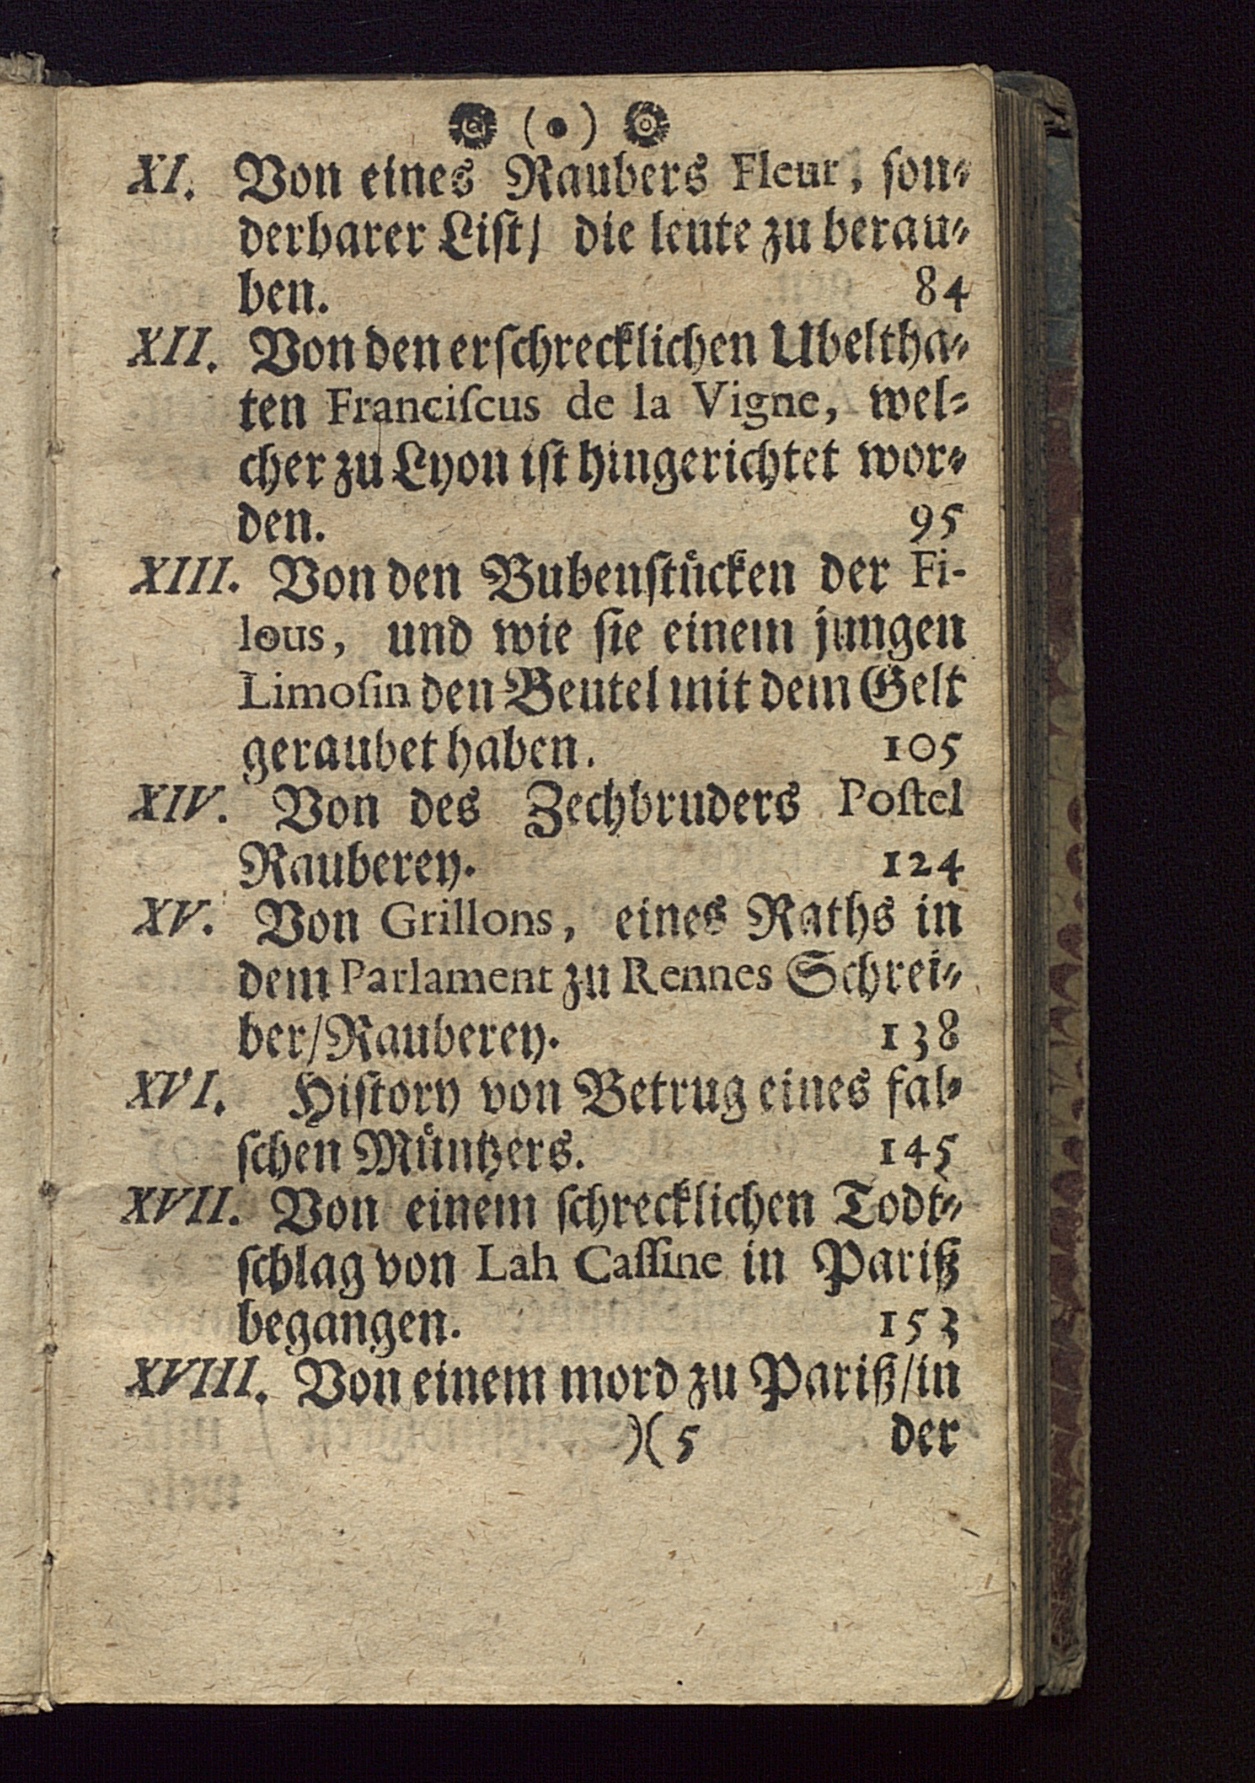 (•)
XI. Von eines Raubers Fleur, ſon⸗
derbarer Liſt/ die leute zu berau⸗
ben. 84
XII. Von den erſchrecklichen Ubeltha⸗
ten Franciſcus de la Vigne, wel⸗
cher zu Lyon iſt hingerichtet wor⸗
den. 95
XIII. Von den Bubenſtuͤcken der Fi-
lous, und wie ſie einem jungen
Limoſin den Beutel mit dem Gelt
geraubet haben. 105
XIV. Von des Zechbruders Poſtel
Rauberey. 124
XV. Von Grillons, eines Raths in
dem Parlament zu Rennes Schrei⸗
ber/Rauberey. 138
XVI. Hiſtory von Betrug eines fal⸗
ſchen Muͤntzers. 145
XVII. Von einem ſchrecklichen Todt⸗
ſchlag von Lah Caſſine in Pariß
begangen. 153
XVIII. Von einem mord zu Pariß/in
)( 5 der